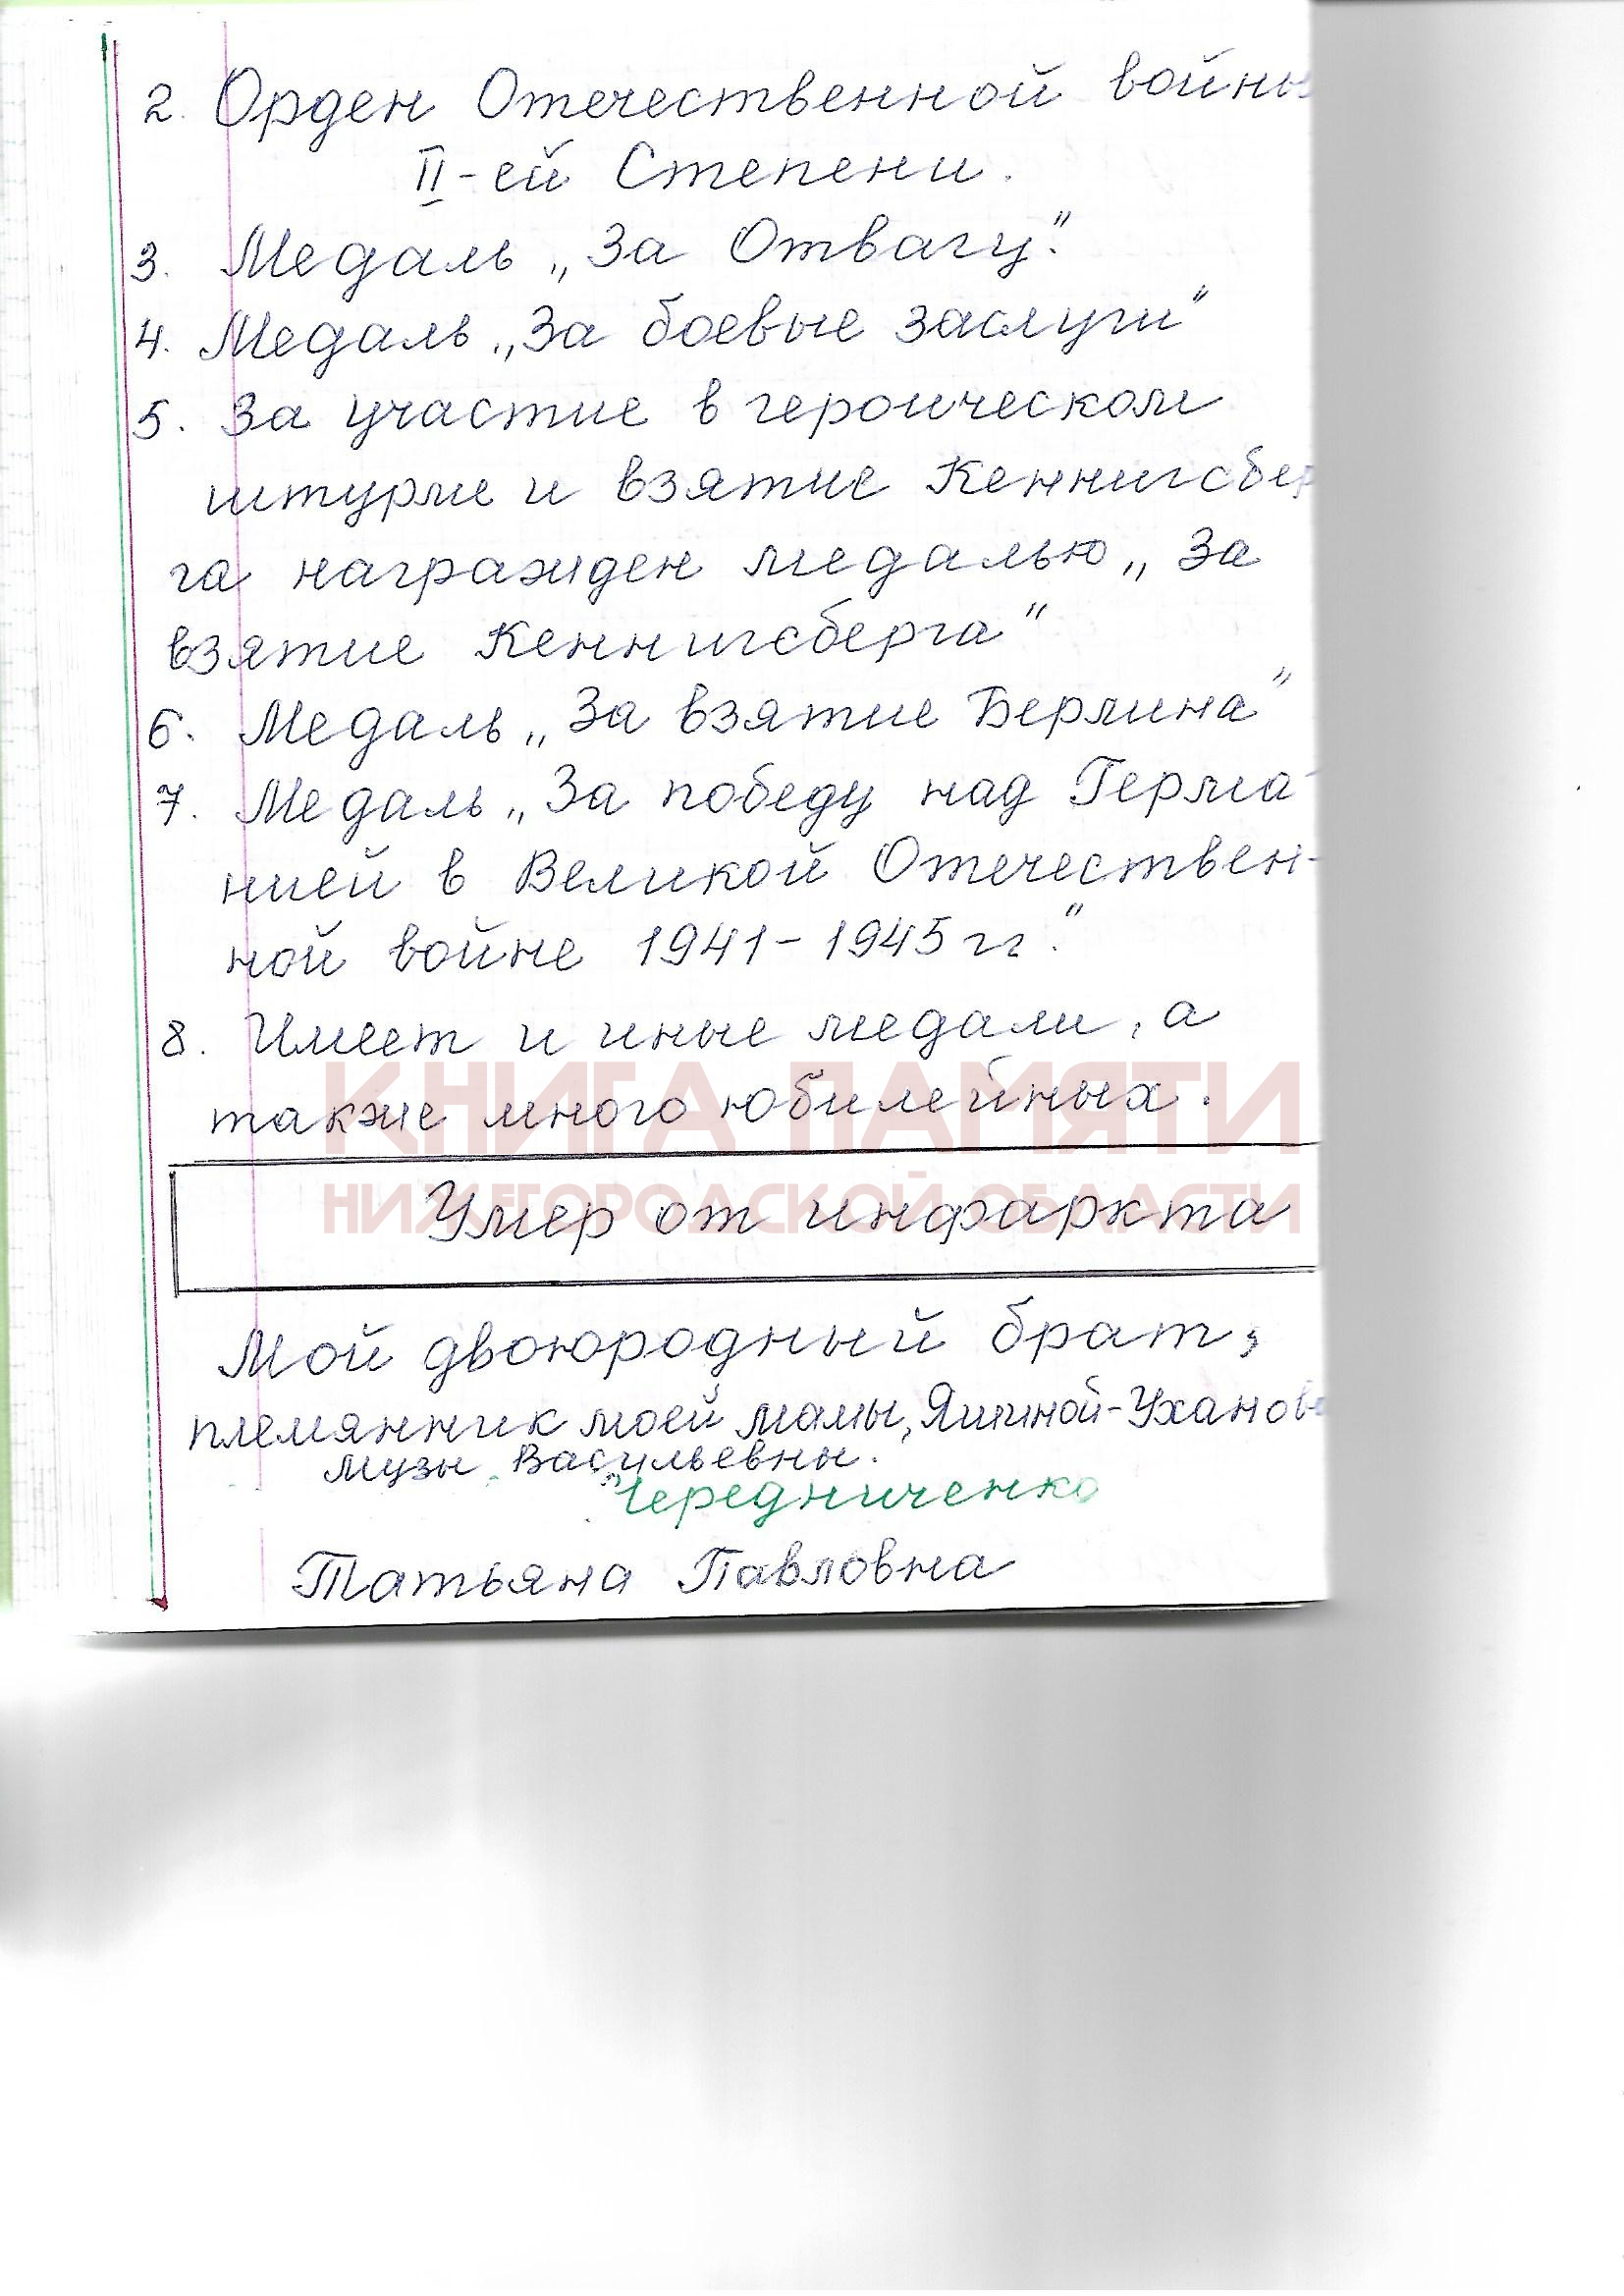 2. Орден Отечественной войны
II-ей Степени.
3. Медаль „За Отвагу".
4. Медаль „За боевые заслуги"
5. За участие в героическом
штурме и взятие Кеннигсбер
га награжден медалью „За
взятие Кеннигсберга"
6. Медаль „За взятие Берлина"
7. Медаль „За победу над Герма-
нией в Великой Отечествен-
ной войне 1941-1945 гг."
8. Имеет и иные медали, а
также много юбилейных.
КНИГА ПАМЯТИ
НИЖЕГОРОДСКОЙ ОБЛАСТИ
Умер от инфаркта
Мой двоюродный брат,
племянник моей мамы, Яшиной-Уханов
Музы Васильевны.
Чередниченко
Татьяна Павловна